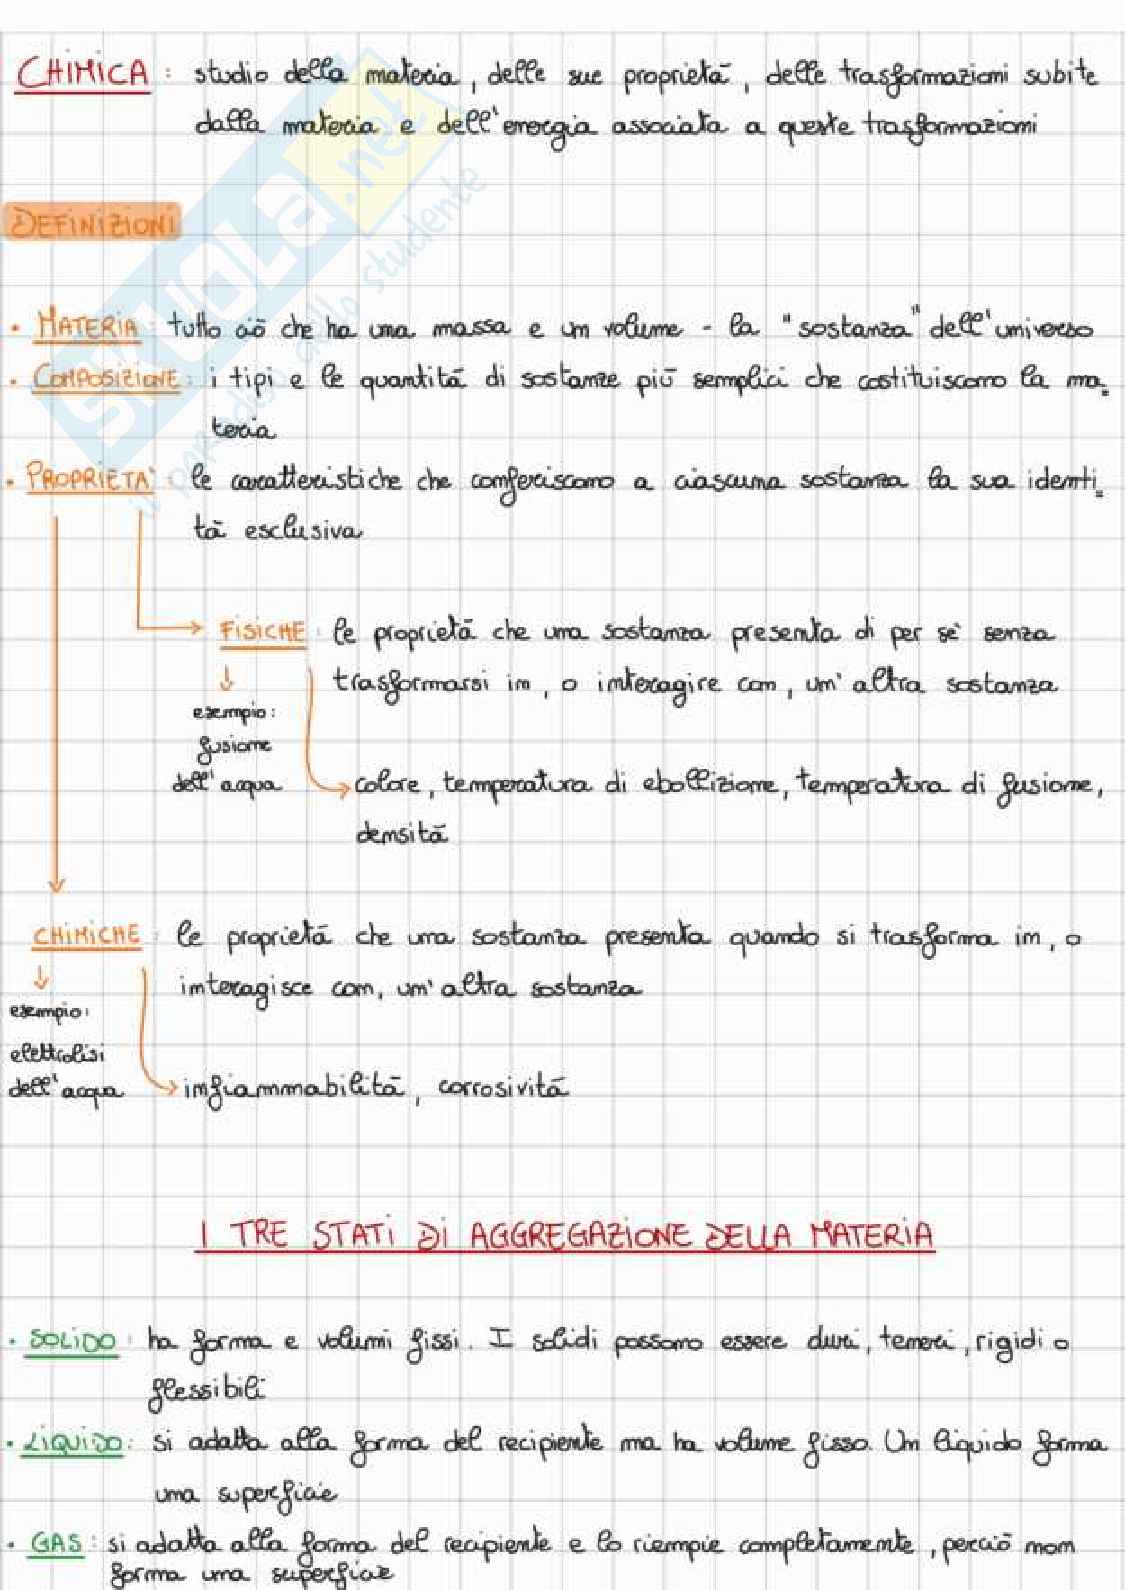 CHIMICA: studio della materia, delle sue proprietà, delle trasformazioni subite
dalla materia e dell'energia associata a queste trasformazioni
DEFINIZIONI
• MATERIA: tutto ciò che ha una massa e un volume - la "sostanza" dell'universo
• COMPOSIZIONE: i tipi e le quantità di sostanze più semplici che costituiscono la ma=
teria
• PROPRIETA': le caratteristiche che conferiscono a ciascuna sostanza la sua identi=
tà esclusiva
FISICHE: le proprietà che una sostanza presenta di per sè senza
trasformarsi in, o interagire con, un'altra sostanza
esempio:
fusione
dell'acqua
colore, temperatura di ebollizione, temperatura di fusione,
densità
CHIMICHE: le proprietà che una sostanza presenta quando si trasforma in, o
interagisce con, un'altra sostanza
esempio:
elettrolisi
dell'acqua
infiammabilità, corrosività
I TRE STATI DI AGGREGAZIONE DELLA MATERIA
• SOLIDO: ha forma e volumi fissi. I solidi possono essere duri, teneri, rigidi o
flessibili
• LIQUIDO: si adatta alla forma del recipiente ma ha volume fisso. Un liquido forma
una superficie
• GAS: si adatta alla forma del recipiente e lo riempie completamente, perciò non
forma una superficie
SKUOLA.net
il paradiso dello studente